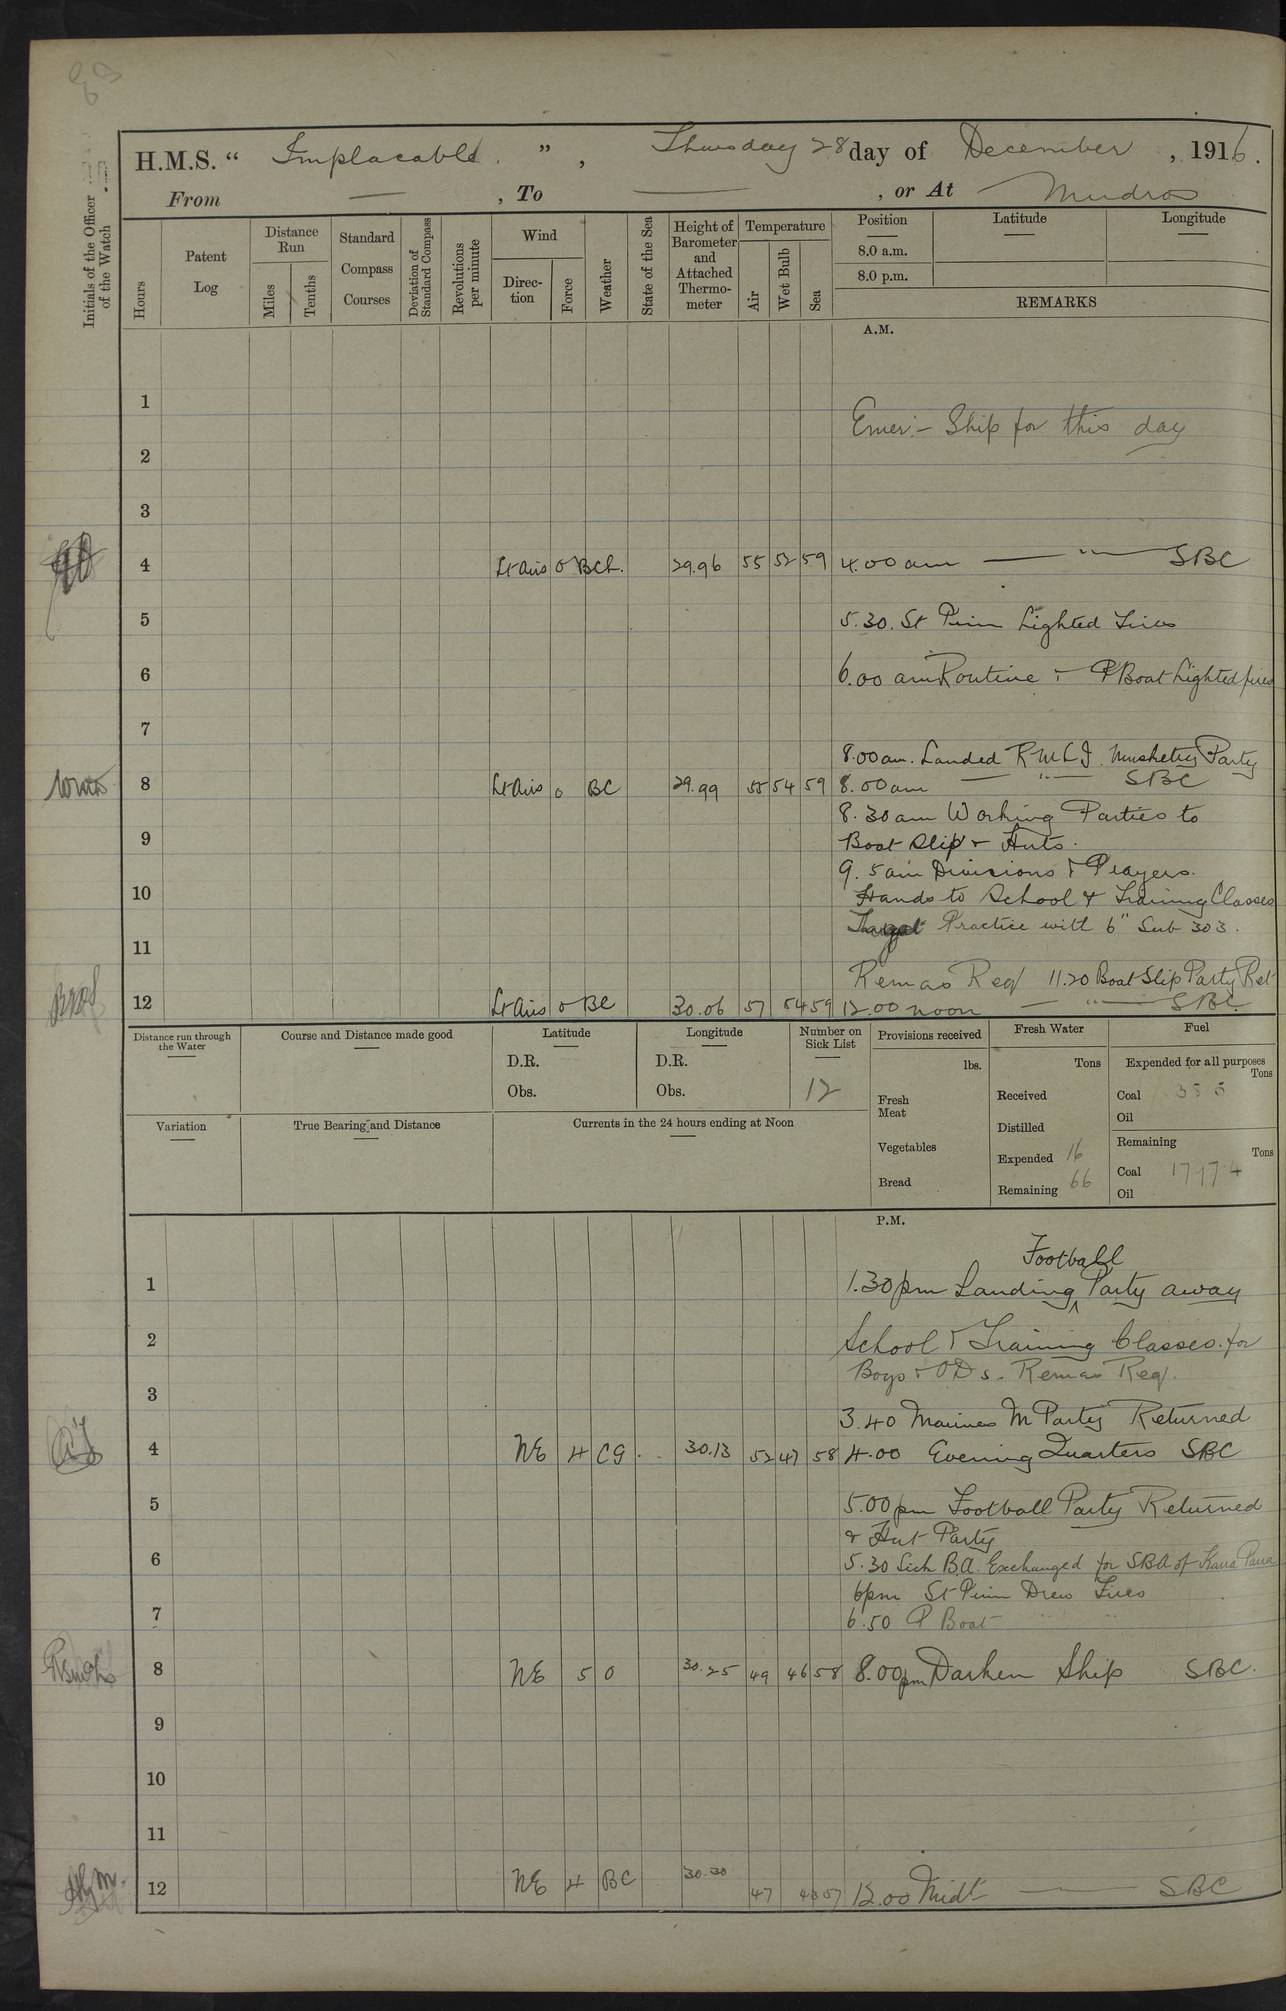 H.M.S. “ Implacable. ” , Thursday 28 day of December , 1916.
From — , To — , or At Mudros
Initials of the Officer of the Watch
Hours
Patent Log
Distance Run
Miles
Tenths
Standard Compass Courses
Deviation of Standard Compass
Revolutions per minute
Wind
Direction
Force
Weather
State of the Sea
Height of Barometer and Attached Thermometer
Temperature
Air
Wet Bulb
Sea
Position Latitude Longitude
8.0 a.m.
8.0 p.m.
REMARKS
A.M.
1
Emer:- Ship for this day
2
3
4 Lt airs 0 BCL. 29.96 55 52 59 4.00 am — " — SBC
5 5.30. St Pinn Lighted Fires
6 6.00 am Routine :- P Boat Lighted fires
7
8.00 am. Landed R M L I. Musketry Party
8 Lt airs 0 BC 29.99 55 54 59 8.00 am — " — SBC
8.30 am Working Parties to
9 Boat Slip & Huts.
9.5 am Divisions & Prayers.
10 Hands to School & Training Classes
11 Practice with 6" Sub 303.
Remas Req 11.20 Boat Slip Party Ret
12 Lt airs 0 BC 30.06 57 54 59 12.00 noon — " — SBC.
Distance run through the Water
Course and Distance made good
Latitude
D.R.
Obs.
Longitude
D.R.
Obs.
Number on Sick List
12
Provisions received
lbs.
Fresh Meat
Vegetables
Bread
Fresh Water
Tons
Received
Distilled
Expended 16
Remaining 66
Fuel
Expended for all purposes
Tons
Coal
Oil
Remaining
Tons
Coal 1777.4
Oil
Variation
True Bearing and Distance
Currents in the 24 hours ending at Noon
P.M.
Football
1 1.30 pm Landing ^ Party away
2 School & Training Classes. for
Boys & ODs. Remas Req.
3
3.40 Marines M Party Returned
4 NE 4 CG 30.13 52 47 58 4.00 Evening Quarters SBC
5 5.00 pm Football Party Returned
& Hut Party
6 5.30 Sick B.A. Exchanged for SBA of
6 pm St Pinn Drew Fires
7 6.50 P Boat " "
8 NE 5 O 30.25 49 46 58 8.00 pm Darken Ship SBC.
9
10
11
12 NE 4 BC 30.30 47 43 57 12.00 Midt — SBC